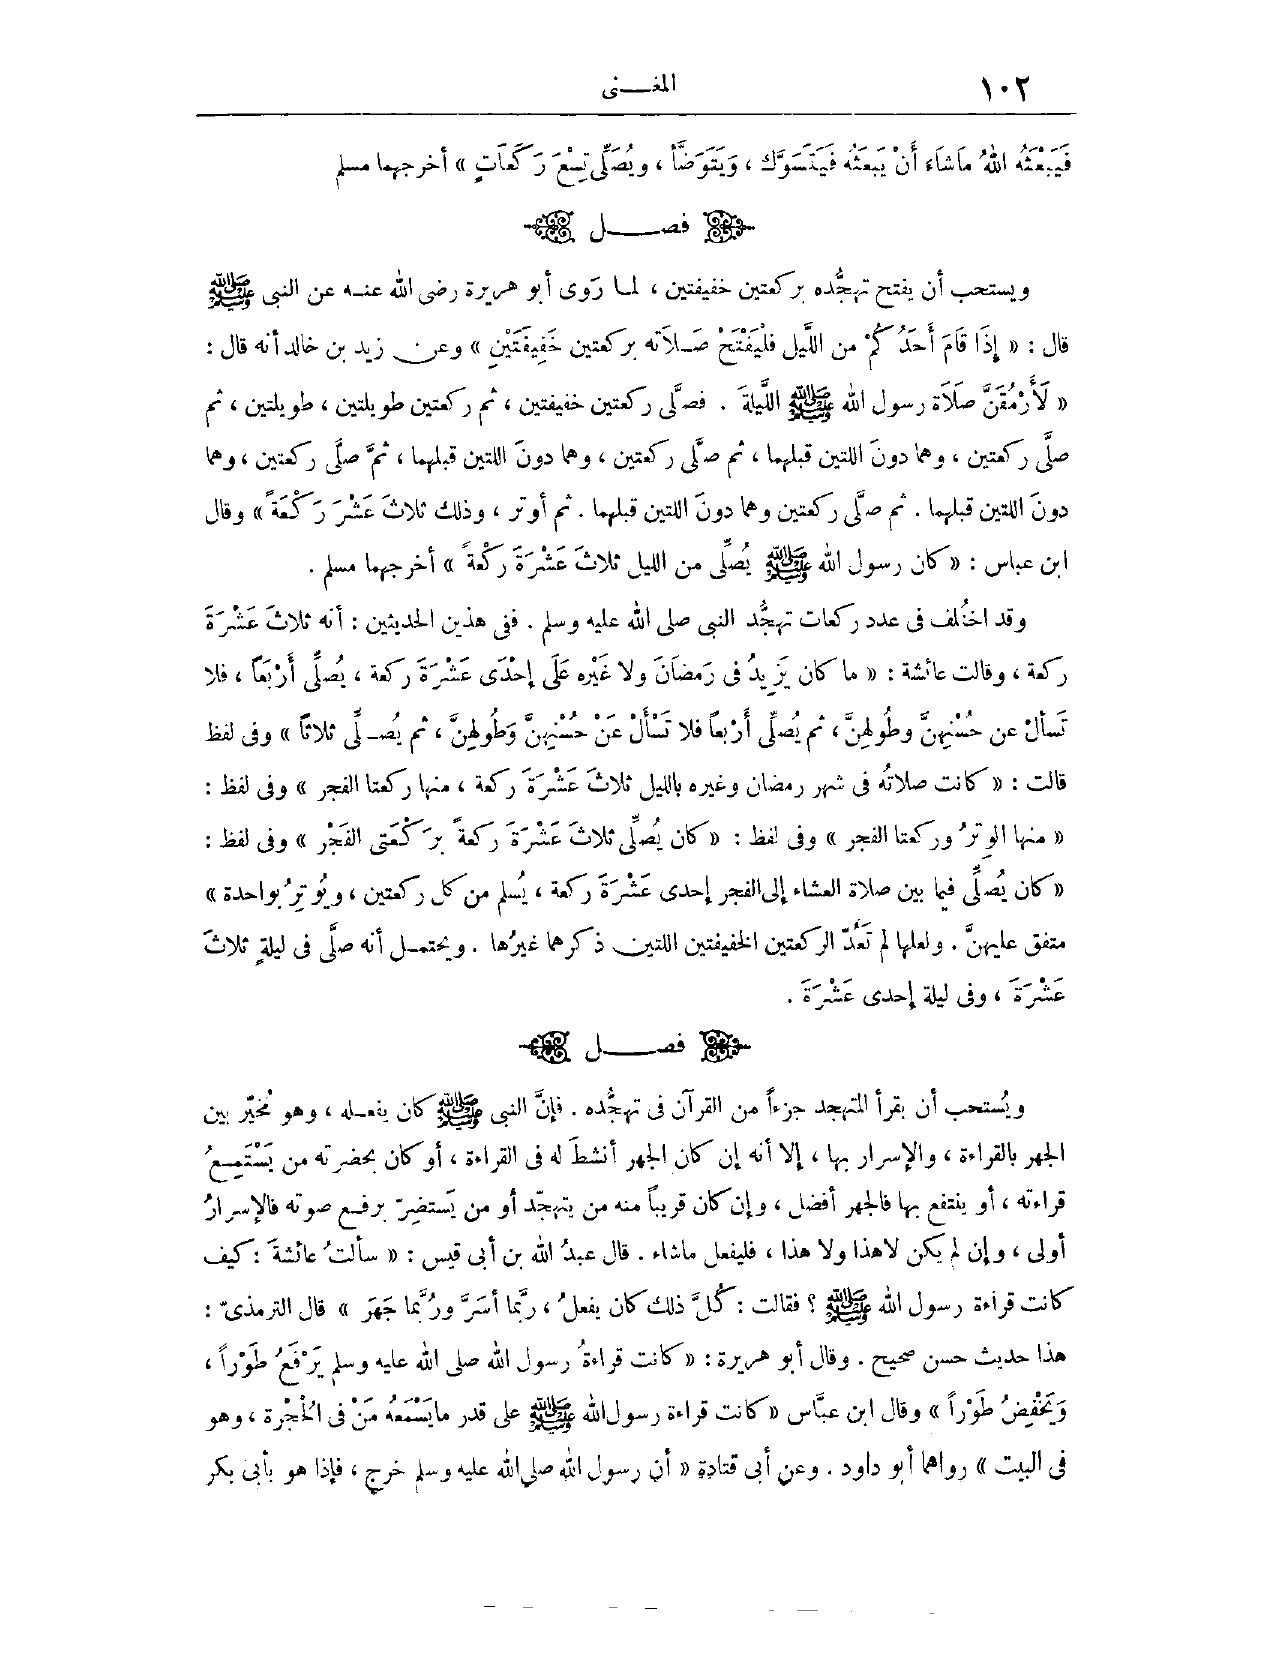 ١٠٢ المغـــنى
فَيَبْعَثُه اللهُ مَاشاَء أَنْ يَبعَثه فَيَتَسَوَّك ، وَيَتَوَضَّأ ، ويُصَلِّى تِسْعَ رَكَعَاتٍ » أخرجهما مسلم
فصــــل
ويستحب أن يفتح تهجُّده بركعتين خفيفتين ، لمـا رَوى أبو هريرة رضى الله عنـه عن النبى ﷺ
قال : « إِذَا قَامَ أَحَدُكُمْ من اللَّيل فلْيَفْتَتِحْ صَـلاَته بركعتين خَفِيفَتَيْنِ » وعن زيد بن خالد أنه قال :
« لَأَرْمُقَنَّ صَلَاة رسول الله ﷺ اللَّيلةَ . فصلَّى ركعتين خفيفتين ، ثم ركعتين طويلتين ، طويلتين ، ثم
صلَّى ركعتين ، وهما دونَ اللتين قبلهما ، ثم صلَّى ركعتين ، وهما دونَ اللتين قبلهما ، ثمَّ صلَّى ركعتين ، وهما
دونَ اللتين قبلهما . ثم صلَّى ركعتين وهما دونَ اللتين قبلهما . ثم أوتر ، وذلك ثلاثَ عَشْرَ رَكْعَةً » وقال
ابن عباس : « كان رسول الله ﷺ يُصلِّى من الليل ثلاثَ عَشْرَةَ رَكْعةً » أخرجهما مسلم .
وقد اختُلف فى عدد ركعات تهجُّد النبى صلى الله عليه وسلم . ففى هذين الحديثين : أنه ثلاثَ عَشْرَةَ
ركعة ، وقالت عائشة : « ما كان يَزِيدُ فى رَمضَانَ ولا غَيْره عَلَى إحْدَى عَشْرَةَ ركعة ، يُصلِّى أَرْبَعاً ، فلا
تَسألْ عن حُسْنِهِنَّ وطُولِهِنَّ ، ثم يُصلِّى أَرْبعاً فلا تَسْأَلْ عَنْ حُسْنِهِنَّ وَطُولِهِنَّ ، ثم يُصـلِّى ثلاثاً » وفى لفظ
قالت : « كانت صلاتُه فى شهر رمضان وغيره بالليل ثلاثَ عَشْرَةَ ركعة ، منها ركعتا الفجر » وفى لفظ :
« منها الوِترُ وركعتا الفجر » وفى لفظ : « كان يُصلِّى ثلاثَ عَشْرَةَ ركعةً بِرَكْعَتى الفَجْر » وفى لفظ :
« كان يُصلِّى فيما بين صلاة العشاء إلى الفجر إحدى عَشْرَةَ ركعة ، يُسلم من كل ركعتين ، ويُوتِرُ بواحدة »
متفق عليهنَّ . ولعلها لم تَعُدّ الركعتين الخفيفتين اللتين ذكرهما غيرُها . ويحتمـل أنه صلَّى فى ليلةٍ ثلاثَ
عَشْرَةَ ، وفى ليلة إحدى عَشْرَةَ .
فصــــل
ويُستحب أن يقرأ المتهجد جزءاً من القرآن فى تهجُّده . فإنَّ النبى ﷺ كان يفعـله ، وهو مُخيّر بين
الجهر بالقراءة ، والإسرار بها ، إلا أنه إن كان الجهر أنشطَ له فى القراءة ، أو كان بحضرته من يَسْتَمِـعُ
قراءته ، أو ينتفع بها فالجهر أفضل ، وإن كان قريباً منه من يتهجّد أو من يَستضِرّ برفـع صوته فالإسرارُ
أولى ، وإن لم يكن لاهذا ولا هذا ، فليفعل ماشاء . قال عبدُ الله بن أبى قيس : « سألتُ عائشةَ : كيف
كانت قراءة رسول الله ﷺ ؟ فقالت : كُلَّ ذلك كان يفعلُ ، ربَّما أسَرَّ ورُبَّما جَهَر » قال الترمذىّ :
هذا حديث حسن صحيح . وقال أبو هريرة : « كانت قراءةُ رسول الله صلى الله عليه وسلم يَرْفَعُ طَوْراً ،
وَيَخْفِضُ طَوْراً » وقال ابن عبَّاس « كانت قراءة رسول الله ﷺ على قدر مايَسْمَعُه مَنْ فى الحُجْرة ، وهو
فى البيت » رواهما أبو داود . وعن أبى قتادة « أن رسول الله صلى الله عليه وسلم خرج ، فإذا هو بأبى بكر